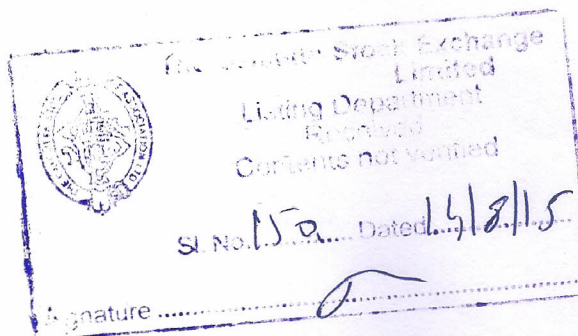 The Stock Exchange
Limited
Listing Department
Received
Contents not verified
Sl. No. 150 Dated 14/8/15
Signature